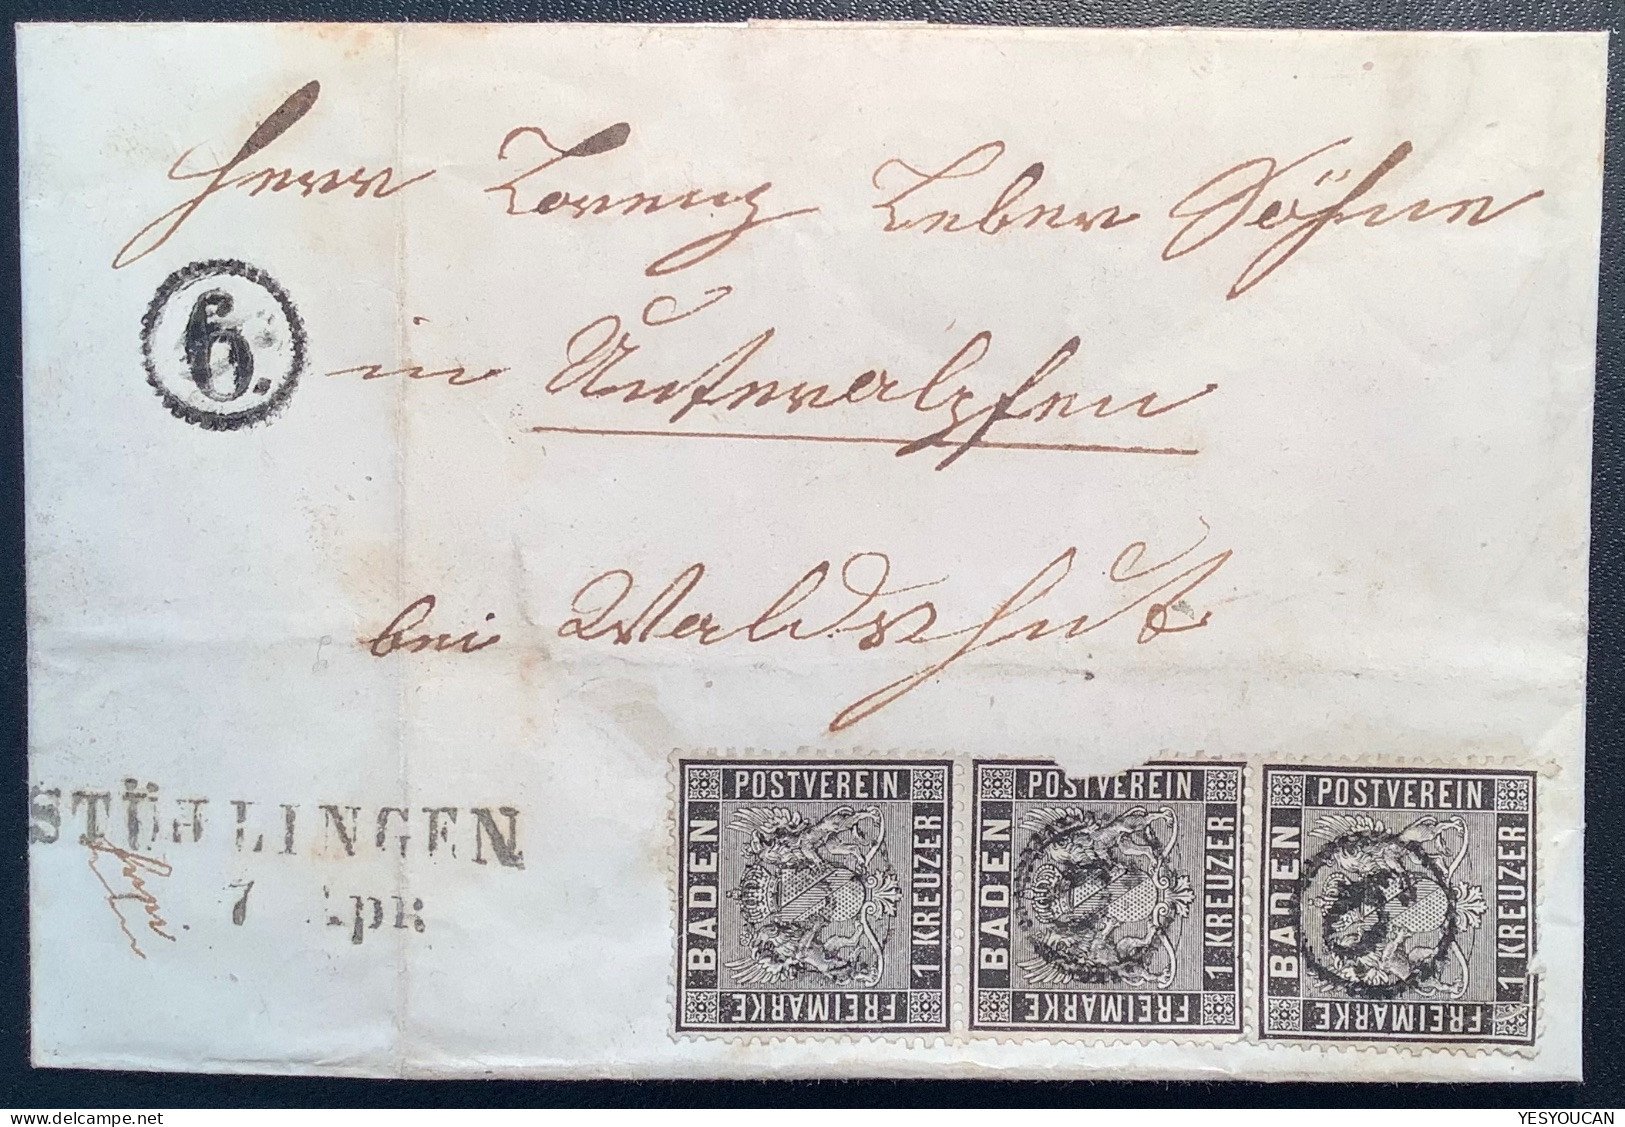 Herr Lorenz Leber Söhne
6.
in Unteralpfen
bei Waldshut
STÜHLINGEN
7 Apr
POSTVEREIN
BADEN
1 KREUZER
FREIMARKE
POSTVEREIN
BADEN
1 KREUZER
FREIMARKE
POSTVEREIN
BADEN
1 KREUZER
FREIMARKE
6.
YESYOUCAN